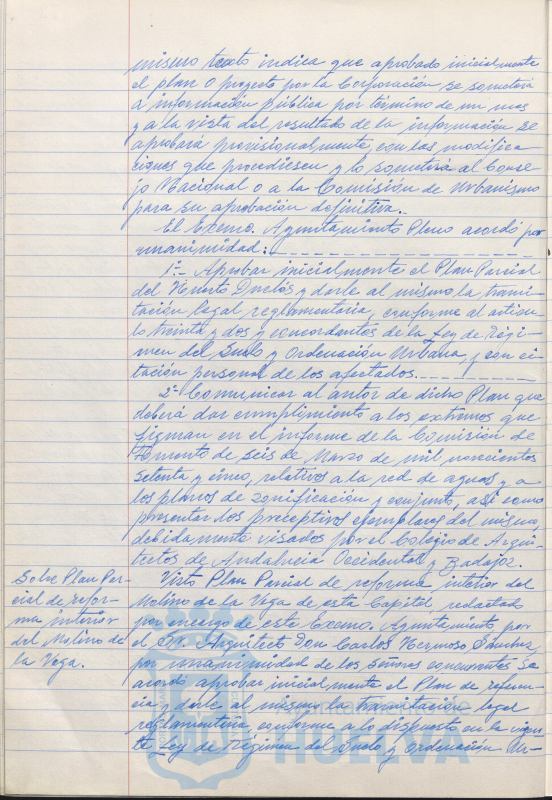 mismo texto indica que aprobado inicialmente
el plan o proyecto por la Corporación se someterá
a información pública por término de un mes
y a la vista del resultado de la información se
aprobará provisionalmente, con las modifica-
ciones que procediesen y lo someterá al Conse-
jo Nacional o a la Comisión de Urbanismo
para su aprobación definitiva.-
El Excmo. Ayuntamiento Pleno acordó por
unanimidad:
1º- Aprobar inicialmente el Plan Parcial
del Huerto Duclós y darle al mismo la trami-
tación legal reglamentaria, conforme al artícu-
lo treinta y dos y concordantes de la Ley de Régi-
men del Suelo y Ordenación Urbana, y con ci-
tación personal de los afectados.
2º- Comunicar al autor de dicho Plan que
deberá dar cumplimiento a los extremos que
figuran en el informe de la Comisión de
Fomento de seis de Marzo de mil novecientos
setenta y cinco, relativos a la red de aguas y a
los planos de zonificación y conjunto, así como
presentar los preceptivos ejemplares del mismo,
debidamente visados por el Colegio de Arqui-
tectos de Andalucia Occidental y Badajoz.
Sobre Plan Par-
cial de refor-
ma interior
del Molino de
la Vega.
Visto Plan Parcial de reforma interior del
Molino de la Vega de esta Capital, redactado
por encargo de este Excmo. Ayuntamiento por
el Sr. Arquitecto Don Carlos Hermoso Sánchez,
por unanimidad de los señores concurrentes se
acordó aprobar inicialmente el Plan de referen-
cia y darle al mismo la tramitación legal
reglamentaria conforme a lo dispuesto en la vigen-
te Ley de Régimen del Suelo y Ordenación Ur-
HUELVA